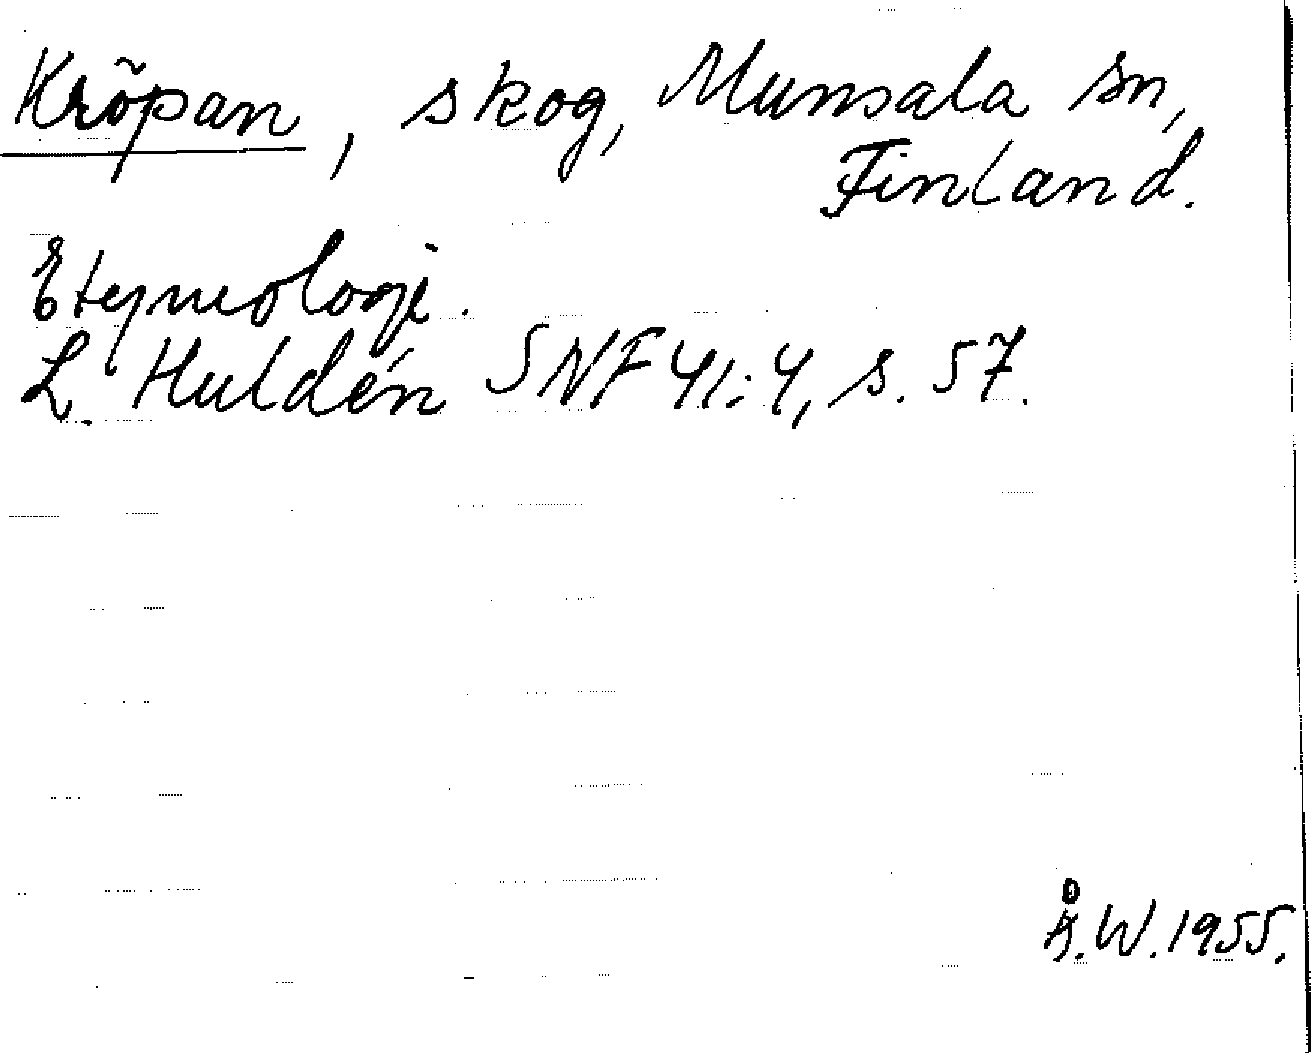 Krõpan, skog, Munsala sn,
Finland.
Etymologi.
L. Huldén SNF 41:4, s. 57.
Å.W. 1955.